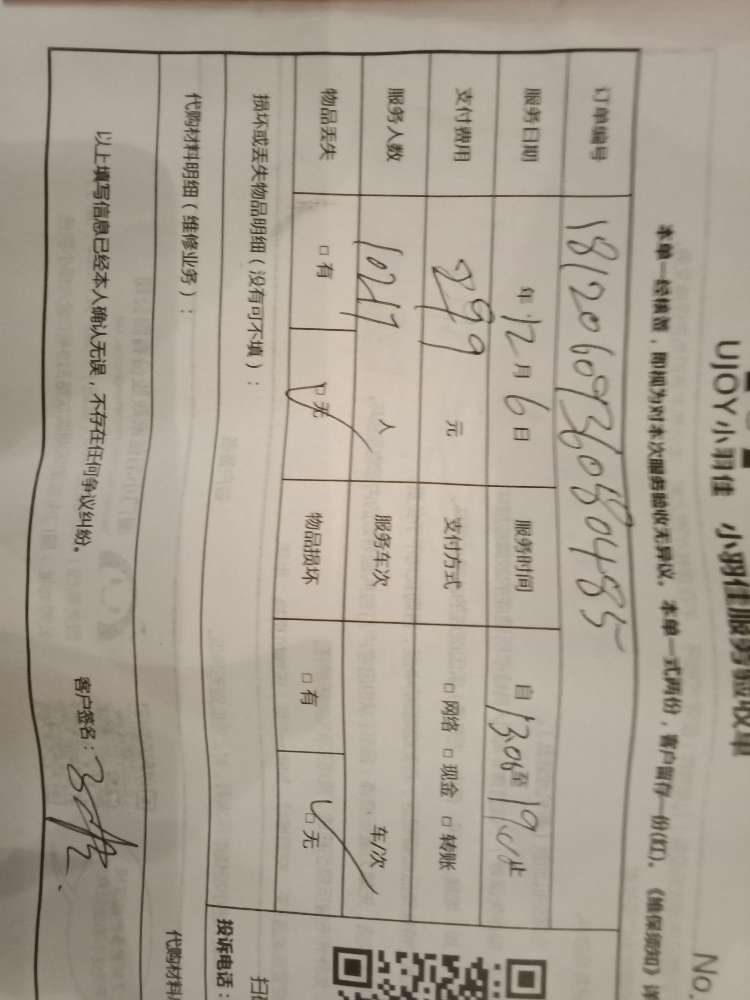 No.
UJOY小羽佳 小羽佳服务验收单
本单一经核签，即视为对本次服务验收无异议。本单一式两份，客户留存一份(红)。《维保须知》详
订单编号 1812060936080485
服务日期 年 12 月 6 日 服务时间 自 13.06 至 19.00 止
支付费用 299 元 支付方式 □ 网络 □ 现金 □ 转账
服务人数 10217 人 服务车次 车/次
物品丢失 □ 有 □ 无 物品损坏 □ 有 □ 无
损坏或丢失物品明细（没有可不填）：
扫
投诉电话：
代购材料明细（维修业务）：
代购材料
以上填写信息已经本人确认无误，不存在任何争议纠纷。 客户签名：